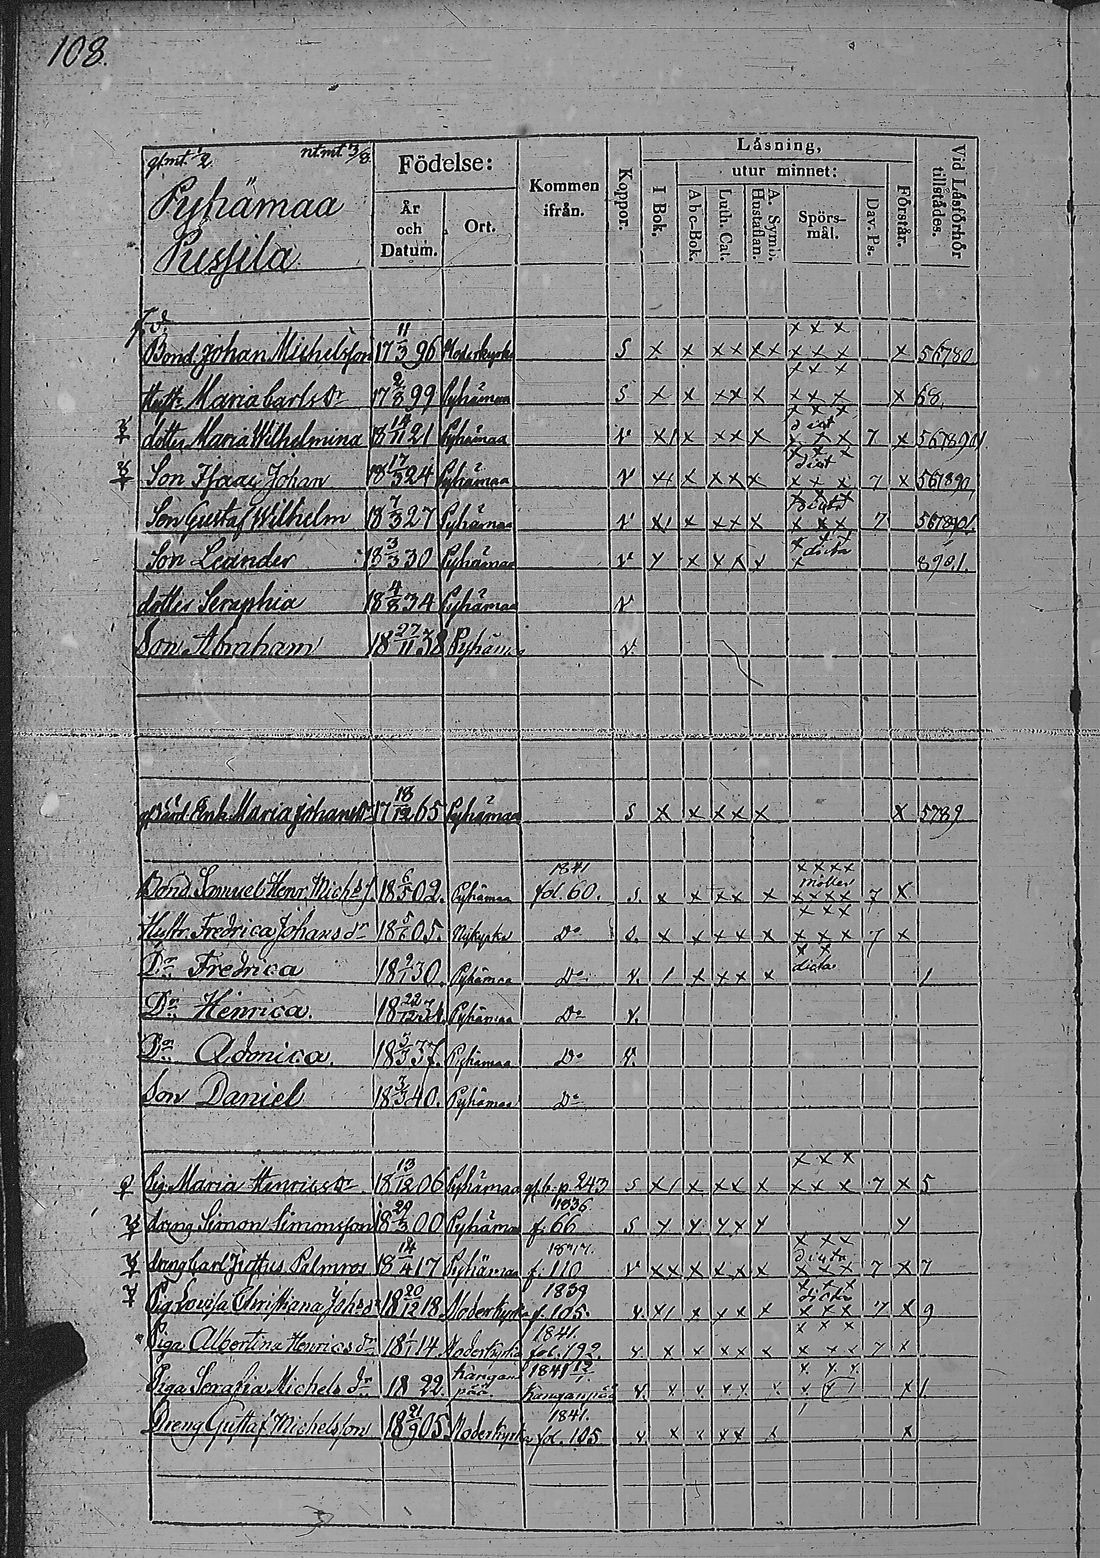 108.
glmt. 1/2 ntmt 3/8.
Pyhämaa
Pussila
Födelse:
År och Datum.
Ort.
Kommen ifrån.
Koppor.
Läsning,
I Bok.
utur minnet:
Abc-Bok.
Luth. Cat.
A. Symb. Hustaflan.
Spörsmål.
Dav. Ps.
Förstår.
Vid Läsförhör tillstädes.
f.d.
Bond. Johan Michelsson 17 11/3 96 Moderkyrk S x x xx xx xxx x 56780
Hustr. Maria Carlsdr 17 2/8 99 Pyhämaa S x x xxx xxx x 68
dotter Maria Wilhelmina 18 21 Pyhämaa v x x xxx xxx 7 x
Son Isaac Johan 18 17/3 24 Pyhämaa v x x xxx xxx 7 x
Son Gustaf Wilhelm 18 7/3 27 Pyhämaa v x x xxx xxx 7
Son Leander 18 3/3 30 Pyhämaa v x x x x x 8901.
dotter Seraphia 18 4/8 34 Pyhämaa v
Son Abraham 18 27/11 38 Pyhämaa v
Enk. Maria Johansdr 17 13/12 65 Pyhämaa S x x xx x x 5789
Bond. Samuel Henr. Michelss. 18 6/5 02. Pyhämaa 1841 fol. 60. S. x x xx x xxxx 7 x
Hustr. Fredrica Johansdr 18 05. Nykyrko Do S. x x xx x xxx 7 x
Dr Fredrica 18 9/1 30. Pyhämaa Do v. / x xx x dicta 1
Dr Henrica. 18 22/12 34 Pyhämaa Do v.
Dr Adonica. 18 5/3 37. Pyhämaa Do v.
Son Daniel 18 3/3 40. Pyhämaa Do
Pig. Maria Henricsdr 18 13/12 06 Pyhämaa p. 243 S x x xx x xxx 7 x 5
dräng Simon Simonsson 18 29/3 00 Pyhämaa 1836 f. 66 S x x xx x x
dräng Carl Justus Palmros 18 14/4 17 Pyhämaa f. 110 v xx x xx x xxx 7 x 7
Pig. Lovisa Christiana Johsdr 18 20/12 18 Moderkyrka 1839 f. 105. v. x x xx x xxx 7 x 9
Piga Albertina Henricsdr 18 1/1 14 Moderkyrka 1841. fol. 192 v x x xx x xxx 7 x
Piga Serafia Michelsdr 18 22. Känganpää 1841 Känganpää v. x x xx x x 1.
Dreng Gustaf Michelsson 18 21/9 05 Moderkyrka 1841. fol. 105 v x x xx x x